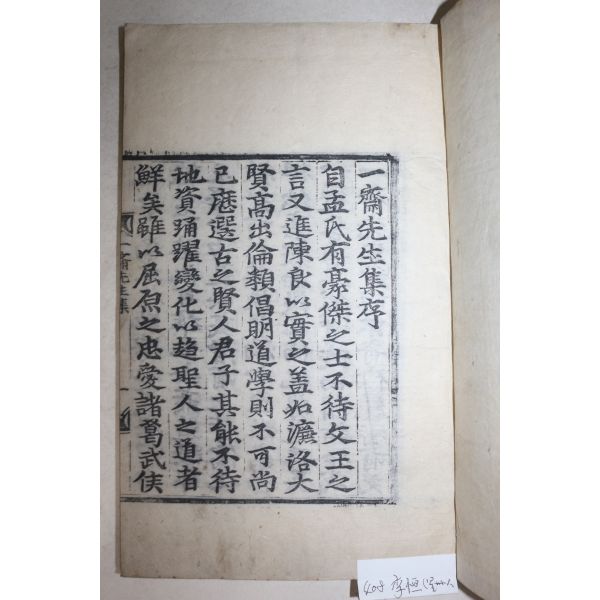 一齋先生集序
自孟氏有豪傑之士不待文王之
言又進陳良以實之蓋如濂洛大
賢高出倫類倡明道學則不可尚
已應選古之賢人君子其能不待
地資踊躍變化以趋聖人之道者
鮮矣雖以屈原之忠愛諸葛武侯
一齋先生集
一
408 李恒